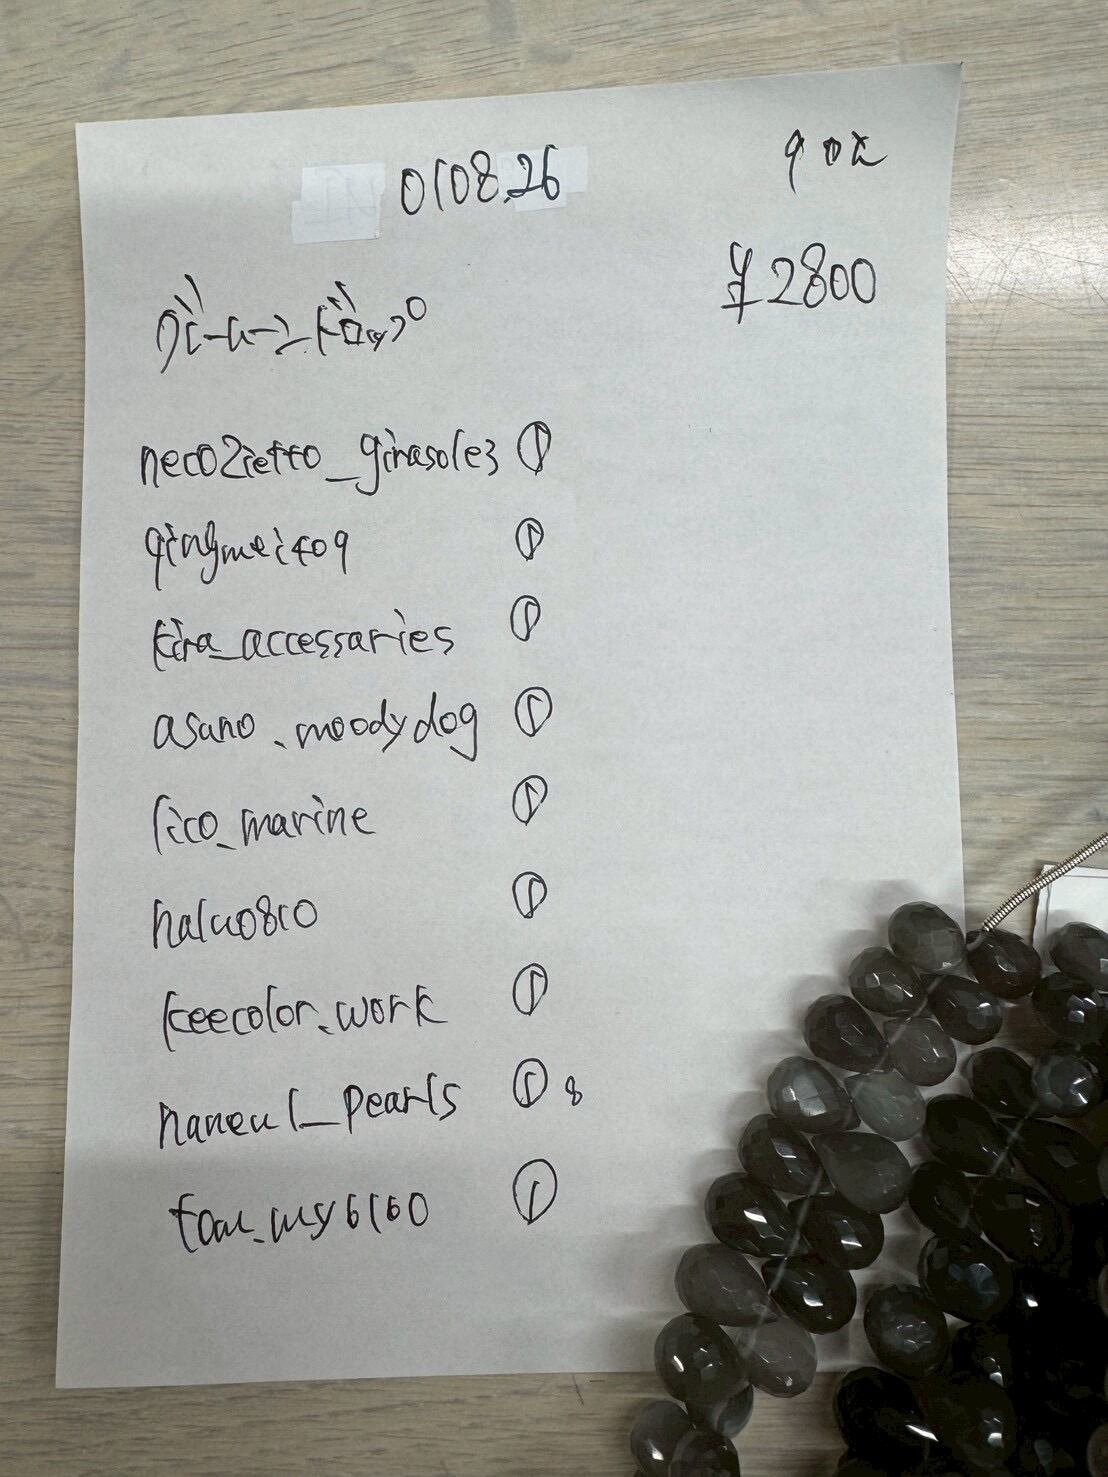 0108.26
¥2800
neco2ietto_girasole3 ①
qingmei409 ①
kira_accessaries ①
asano.moodydog ①
rico_marine ①
halu0810 ①
keecolor.work ①
haneul_pearls ① 8
①